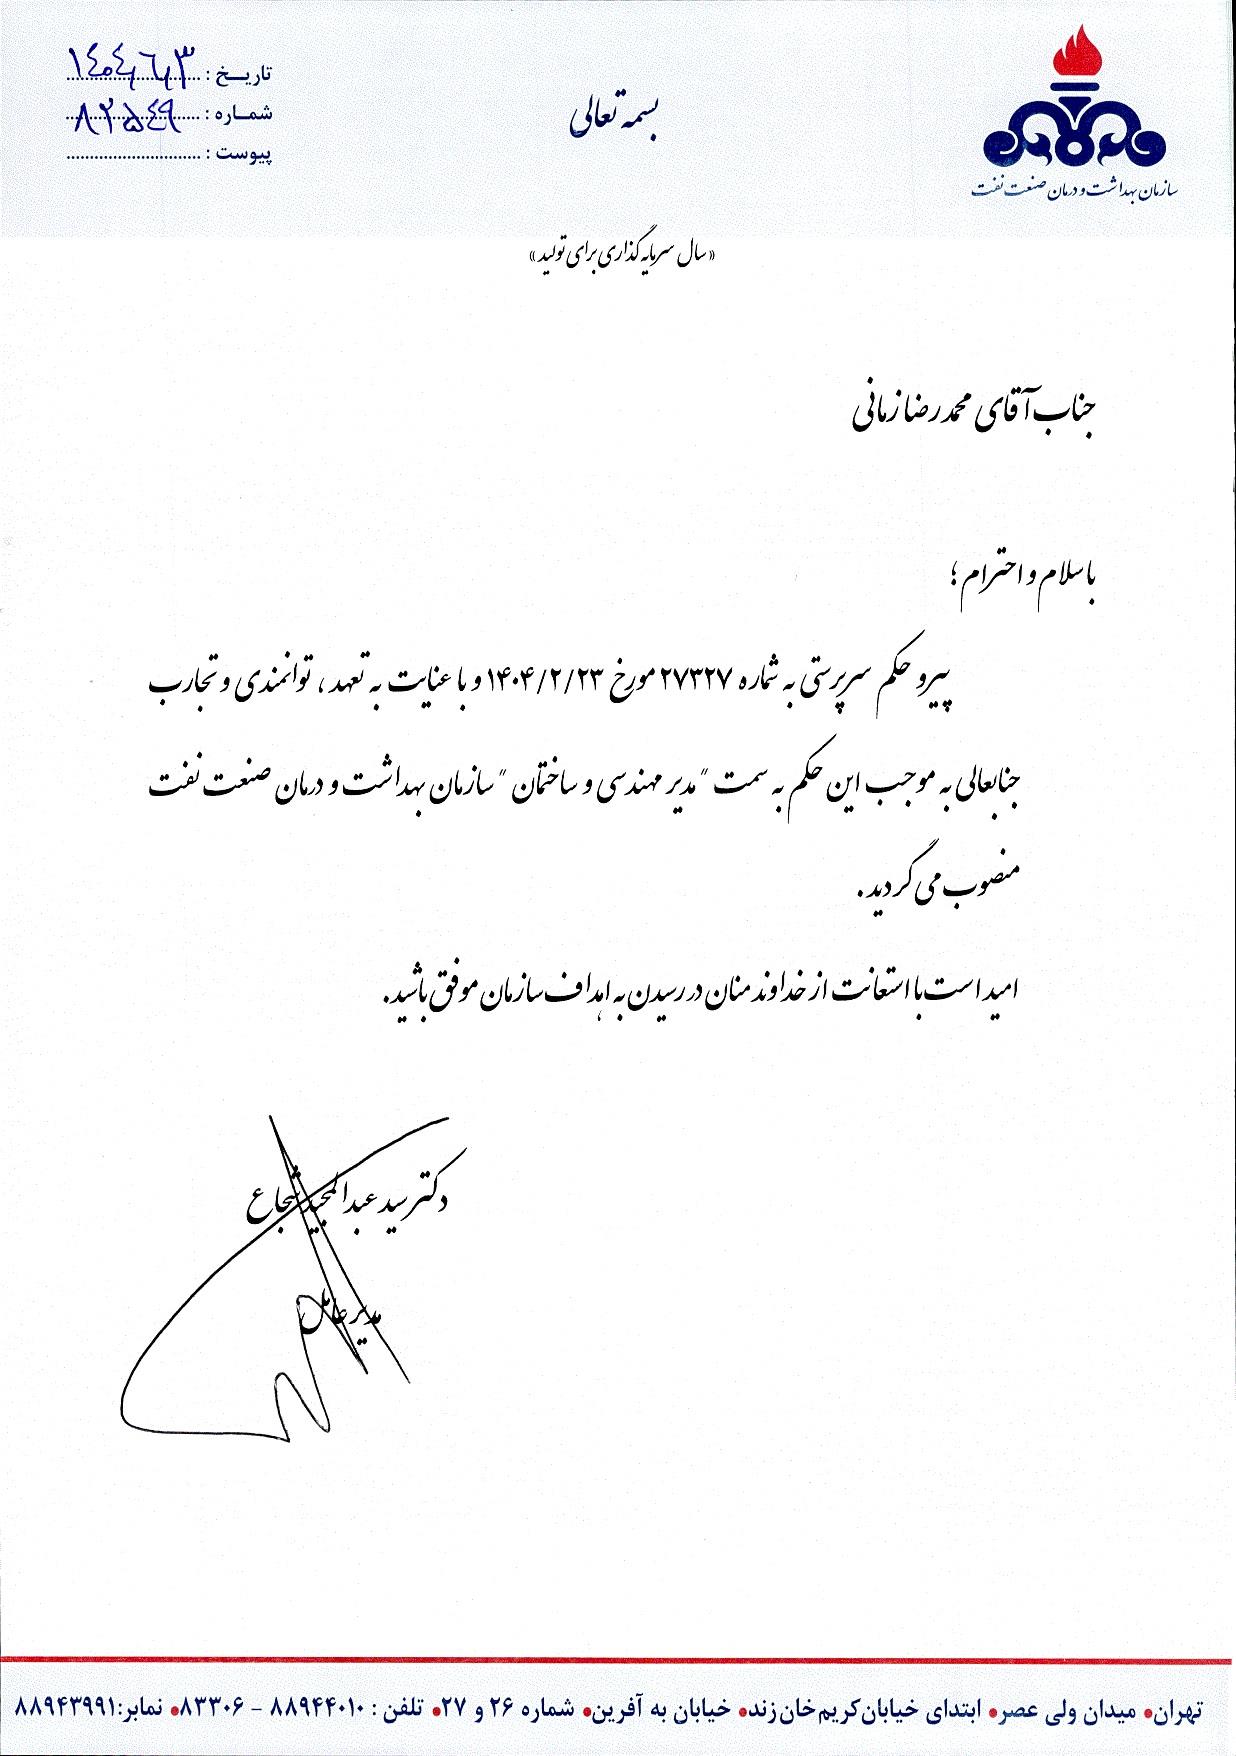 بسمه تعالی
تاریـخ : ۱۴۰۴/۶/۳
شمـاره : ۸۲۵۴۹
پیوست :
سازمان بهداشت و درمان صنعت نفت
«سال سرمایه گذاری برای تولید»
جناب آقای محمدرضا زمانی
با سلام و احترام ؛
پیرو حکم سرپرستی به شماره ۲۷۳۲۷ مورخ ۱۴۰۴/۲/۲۳ و با عنایت به تعهد ، توانمندی و تجارب
جنابعالی به موجب این حکم به سمت "مدیر مهندسی و ساختمان" سازمان بهداشت و درمان صنعت نفت
منصوب می گردید .
امید است با استعانت از خداوند منان در رسیدن به اهداف سازمان موفق باشید.
دکتر سید عبدالمجید شجاع
مدیر عامل
تهران• میدان ولی عصر• ابتدای خیابان کریم خان زند• خیابان به آفرین• شماره ۲۶ و ۲۷• تلفن : ۸۸۹۴۴۰۱۰ - ۸۳۳۰۶• نمابر:۸۸۹۴۳۹۹۱